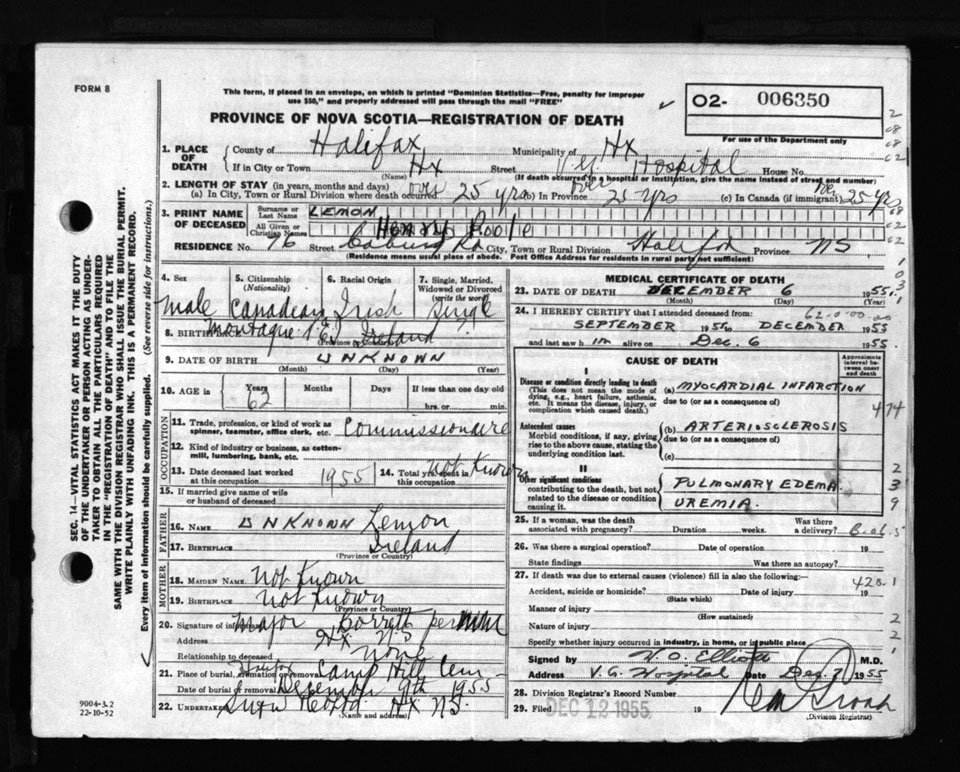 FORM 8
This form, if placed in an envelope, on which is printed "Dominion Statistics—Free, penalty for improper
use $50," and properly addressed will pass through the mail "FREE"
PROVINCE OF NOVA SCOTIA—REGISTRATION OF DEATH
02- 006350
For use of the Department only
1. PLACE OF DEATH
County of Halifax Municipality of Hx
If in City or Town Hx Street V.G. Hospital House No.
(Name) (If death occurred in a hospital or institution, give the name instead of street and number)
2. LENGTH OF STAY (in years, months and days)
(a) In City, Town or Rural Division where death occurred over 25 yrs (b) in Province over 25 yrs (c) In Canada (if immigrant) over 25 yrs
3. PRINT NAME OF DECEASED
Surname or Last Name LEMON
All Given or Christian Names Henry Poole
RESIDENCE No. 76 Street Coburg Rd City, Town or Rural Division Halifax Province NS
(Residence means usual place of abode. Post Office Address for residents in rural parts not sufficient)
4. Sex
male
5. Citizenship
(Nationality)
Canadian
6. Racial Origin
Irish
7. Single, Married, Widowed or Divorced
(write the word)
Single
8. BIRTHPLACE Ireland
(Province or Country)
9. DATE OF BIRTH UNKNOWN
(Month) (Day) (Year)
10. AGE in Years Months Days If less than one day old
62 hrs. or min.
OCCUPATION
11. Trade, profession, or kind of work as
spinner, teamster, office clerk, etc. Commissionaire
12. Kind of industry or business, as cotton-
mill, lumbering, bank, etc.
13. Date deceased last worked
at this occupation 1955
14. Total years spent in
this occupation Not Known
15. If married give name of wife
or husband of deceased
FATHER
16. NAME UNKNOWN Lemon
17. BIRTHPLACE Ireland
(Province or Country)
MOTHER
18. MAIDEN NAME Not Known
19. BIRTHPLACE Not Known
(Province or Country)
20. Signature of informant Major Borrett per
Address Hx N.S.
Relationship to deceased None
21. Place of burial, cremation or removal Halifax Camp Hill Cem
Date of burial or removal December 9th 1955
22. Undertaker Hx N.S.
MEDICAL CERTIFICATE OF DEATH
23. DATE OF DEATH DECEMBER 6 1955
(Month) (Day) (Year)
24. I HEREBY CERTIFY that I attended deceased from:
SEPTEMBER 1955 to DECEMBER 1955
and last saw him alive on Dec. 6 1955.
CAUSE OF DEATH
Approximate interval between onset and death
I
Disease or condition directly leading to death
(This does not mean the mode of
dying, e.g., heart failure, asthenia,
etc. It means the disease, injury, or
complication which caused death.)
(a) MYOCARDIAL INFARCTION
due to (or as a consequence of)
Antecedent causes
Morbid conditions, if any, giving
rise to the above cause, stating the
underlying condition last.
(b) ARTERIOSCLEROSIS
due to (or as a consequence of)
(c)
II
Other significant conditions
contributing to the death, but not
related to the disease or condition
causing it.
PULMONARY EDEMA
UREMIA.
25. If a woman, was the death
associated with pregnancy? Duration weeks. Was there
a delivery?
26. Was there a surgical operation? Date of operation 19
State findings Was there an autopsy?
27. If death was due to external causes (violence) fill in also the following:—
420.1
Accident, suicide or homicide? Date of injury 19
(State which)
Manner of injury
(How sustained)
Nature of injury
Specify whether injury occurred in industry, in home, or in public place
Signed by W. O. Elliott M.D.
Address V.G. Hospital Date Dec. 7 1955
28. Division Registrar's Record Number
29. Filed DEC 12 1955 19
(Division Registrar)
SEC. 14—VITAL STATISTICS ACT MAKES IT THE DUTY
OF THE UNDERTAKER OR PERSON ACTING AS UNDER-
TAKER TO OBTAIN ALL THE PARTICULARS REQUIRED
IN THE "REGISTRATION OF DEATH" AND TO FILE THE
SAME WITH THE DIVISION REGISTRAR WHO SHALL ISSUE THE BURIAL PERMIT.
WRITE PLAINLY WITH UNFADING INK. THIS IS A PERMANENT RECORD.
Every item of information should be carefully supplied. (See reverse side for instructions.)
9004-3.2
22-10-52